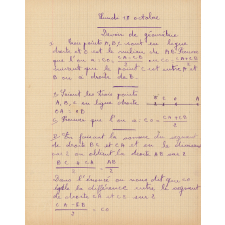 Lundi 18 octobre
Devoir de géométrie
Trois points A, B, C sont en ligne
droite et O est le milieu de AB. Prouver
que l'on a : CO = (CA + CB)/2 ou CO = (CA - CB)/2
suivant que le point C est entre
ou à droite de B.
Soient les trois points
A, B, C en ligne droite
Prouver que l'on a : CO = (CA + CB)/2
En faisant la somme du segment
de droite BC et CA et en le divisant
par 2 on obtient la droite AB sur 2
BC + CA = AB
2 2
Dans l'énoncé on nous dit que CO
égale la différence entre le segment
de droite CA et CB sur 2
CA - CB = CO
2